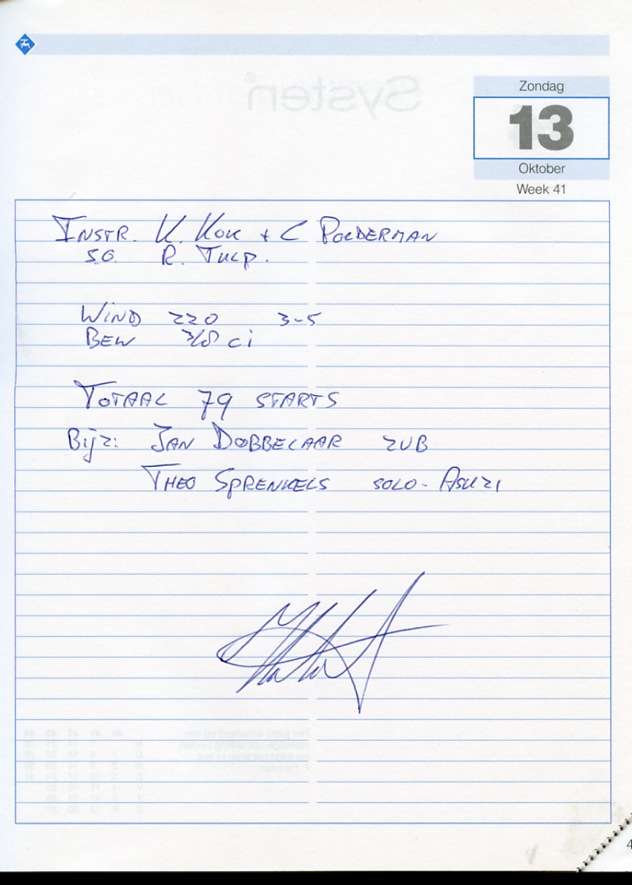 Zondag
13
Oktober
Week 41
INSTR. K. KOK + C POLDERMAN
S.O. R. TULP.
WIND 220 3-5
BEW 3/8 ci
TOTAAL 79 STARTS
Bijz: JAN DOBBELAAR ZUB
THEO SPRENKELS SOLO - ASK21